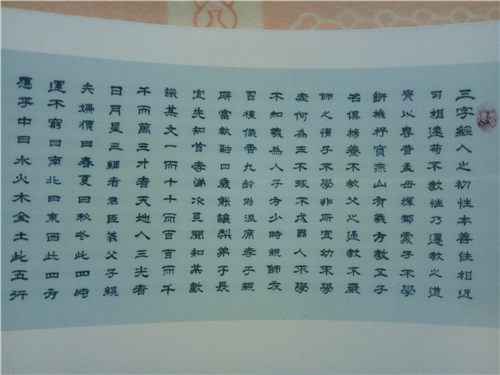 三字經人之初性本善性相近
習相遠苟不教性乃遷教之道
貴以專昔孟母擇鄰處子不學
斷機杼竇燕山有義方教五子
名俱揚養不教父之過教不嚴
師之惰子不學非所宜幼不學
老何為玉不琢不成器人不學
不知義為人子方少時親師友
習禮儀香九齡能溫席孝于親
所當執融四歲能讓梨弟于長
宜先知首孝悌次見聞知某數
識某文一而十十而百百而千
千而萬三才者天地人三光者
日月星三綱者君臣義父子親
夫婦順曰春夏曰秋冬此四時
運不窮曰南北曰東西此四方
應乎中曰水火木金土此五行